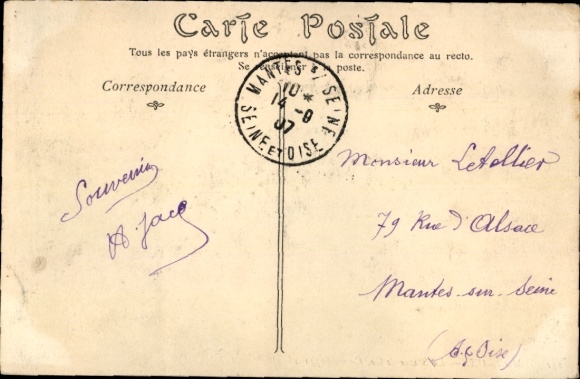 Carte Postale
Tous les pays étrangers n'acceptent pas la correspondance au recto.
Se renseigner à la poste.
Correspondance
Adresse
MANTES S/ SEINE
10 *
14 - 9
07
SEINE ET OISE
Souvenir
A. Jacq
Monsieur Letellier
79 Rue d'Alsace
Mantes-sur-Seine
(S & Oise)